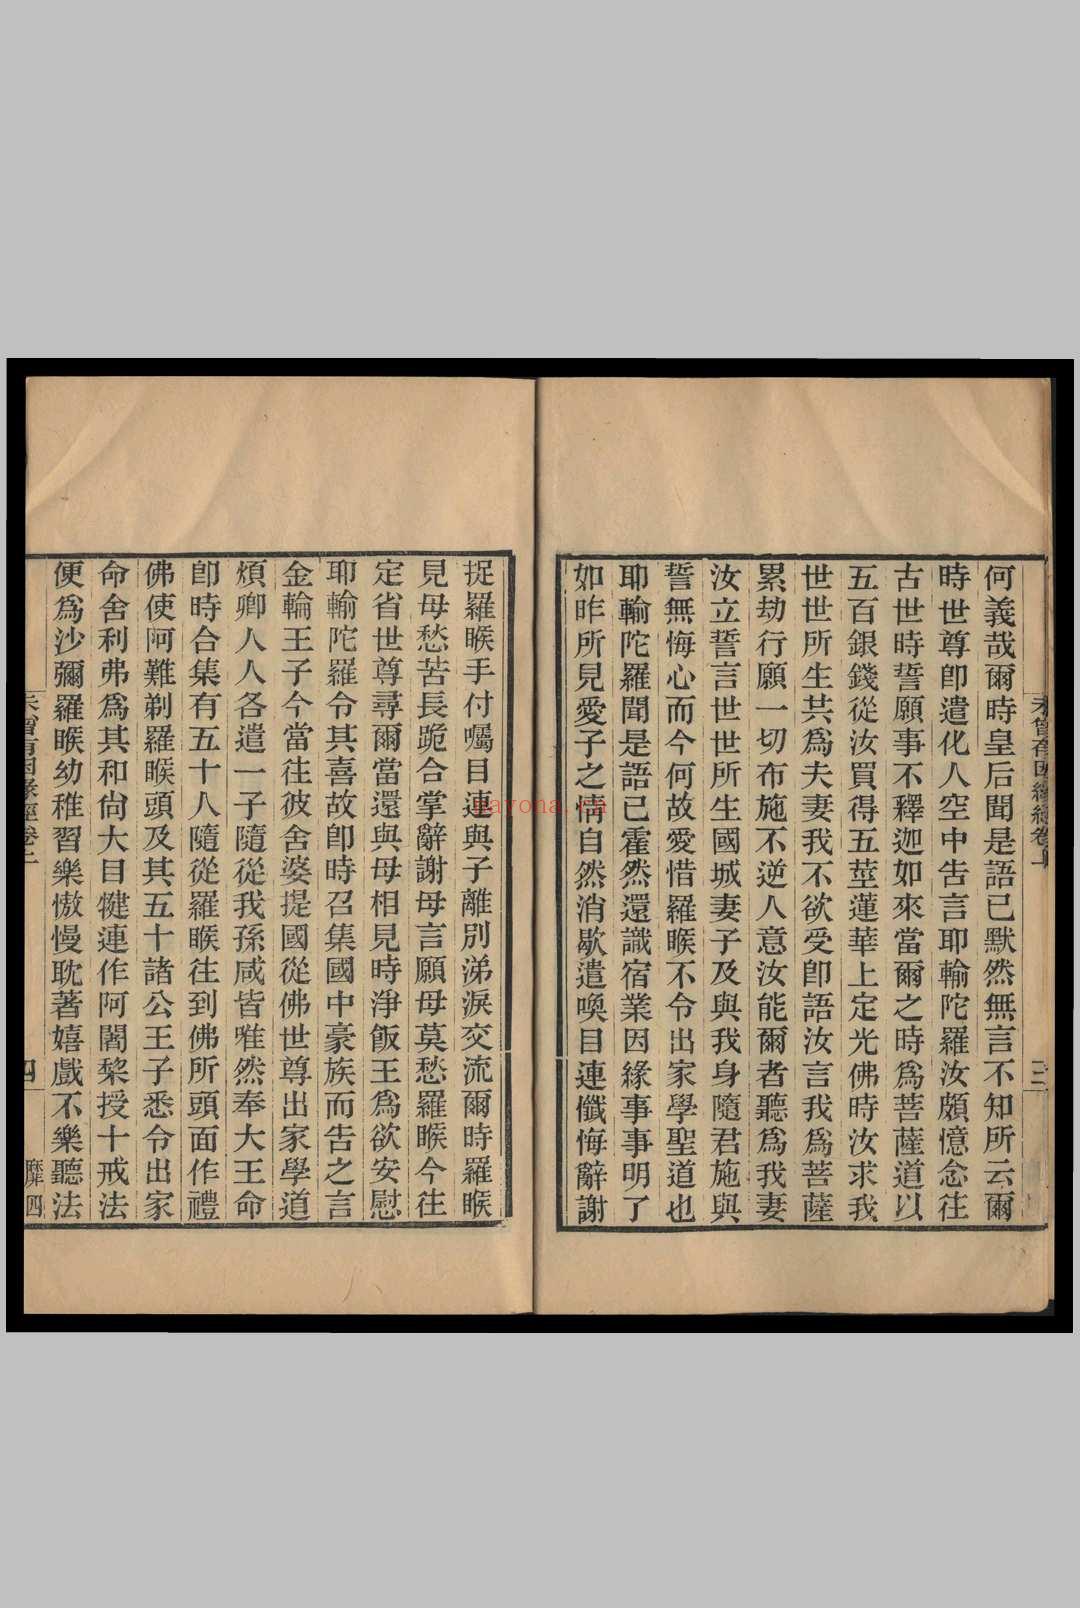 未曾有因緣經卷上
三
何義哉爾時皇后聞是語已默然無言不知所云爾
時世尊卽遣化人空中告言耶輸陀羅汝頗憶念往
古世時誓願事不釋迦如來當爾之時爲菩薩道以
五百銀錢從汝買得五莖蓮華上定光佛時汝求我
世世所生共爲夫妻我不欲受卽語汝言我爲菩薩
累劫行願一切布施不逆人意汝能爾者聽爲我妻
汝立誓言世世所生國城妻子及與我身隨君施與
誓無悔心而今何故愛惜羅睺不令出家學聖道也
耶輸陀羅聞是語已霍然還識宿業因緣事事明了
如昨所見愛子之情自然消歇遣喚目連懺悔辭謝
捉羅睺手付囑目連與子離別涕淚交流爾時羅睺
見母愁苦長跪合掌辭謝母言願母莫愁羅睺今往
定省世尊尋爾當還與母相見時淨飯王爲欲安慰
耶輸陀羅令其喜故卽時召集國中豪族而告之言
金輪王子今當往彼舍婆提國從佛世尊出家學道
煩卿人人各遣一子隨從我孫咸皆唯然奉大王命
卽時合集有五十人隨從羅睺往到佛所頭面作禮
佛使阿難剃羅睺頭及其五十諸公王子悉令出家
命舍利弗爲其和尙大目犍連作阿闍棃授十戒法
便爲沙彌羅睺幼稚習樂憿慢耽著嬉戲不樂聽法
未曾有因緣經卷上
四
靡四
nayona.cn